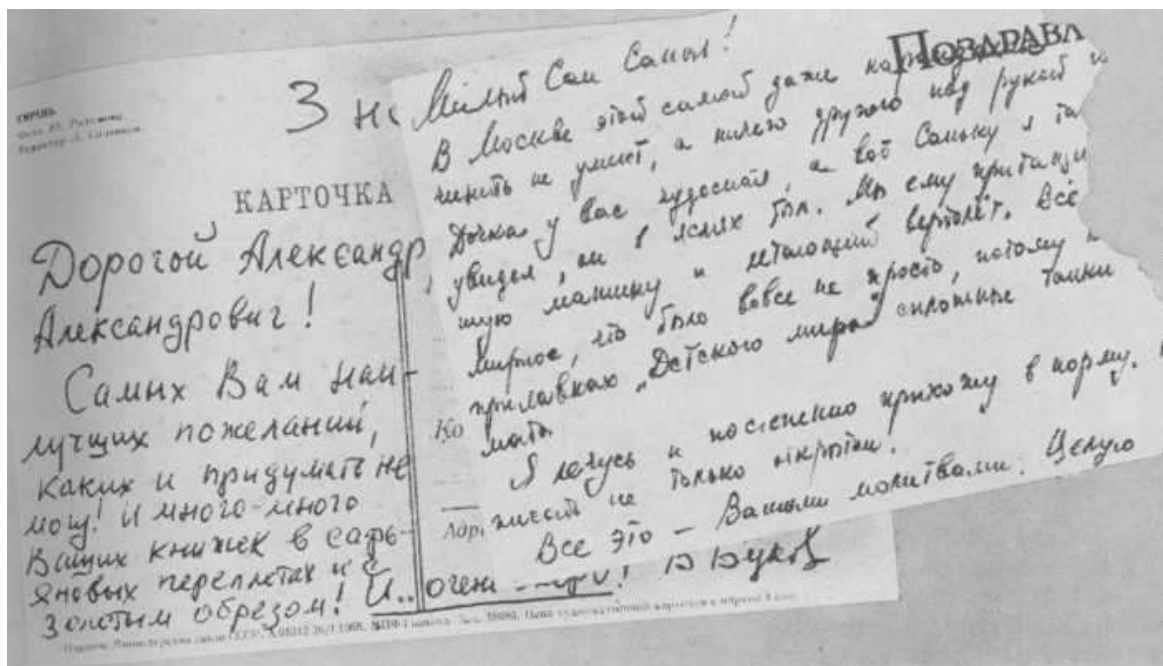 СИРЕНЬ
З но
КАРТОЧКА
Дорогой Александр
Александрович!
Самых Вам наи-
лучших пожеланий,
каких и придумать не
могу! И много-много
Ваших книжек в сафь-
яновых переплетах и с
золотым обрезом! И.. очень
Ко
Адр
ПОЗДРАВЛ
Милый Сан Саныч!
В Москве этой самой даже
чинить не умеют, а ничего другого под рукой
Дочка у вас чудесная, а вот Саньку я
увидел, он в яслях был. Мы ему притащи
шую машину и летающий вертолёт. Всё
мирное, что было вовсе не просто, потому
прилавках „Детского мира" сплошные танки
Я лечусь и постепенно прихожу в норму.
писать не только открытки.
Все это – Вашими молитвами. Целую